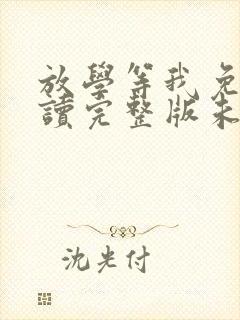 放學等我免
讀完整版未
沈光付